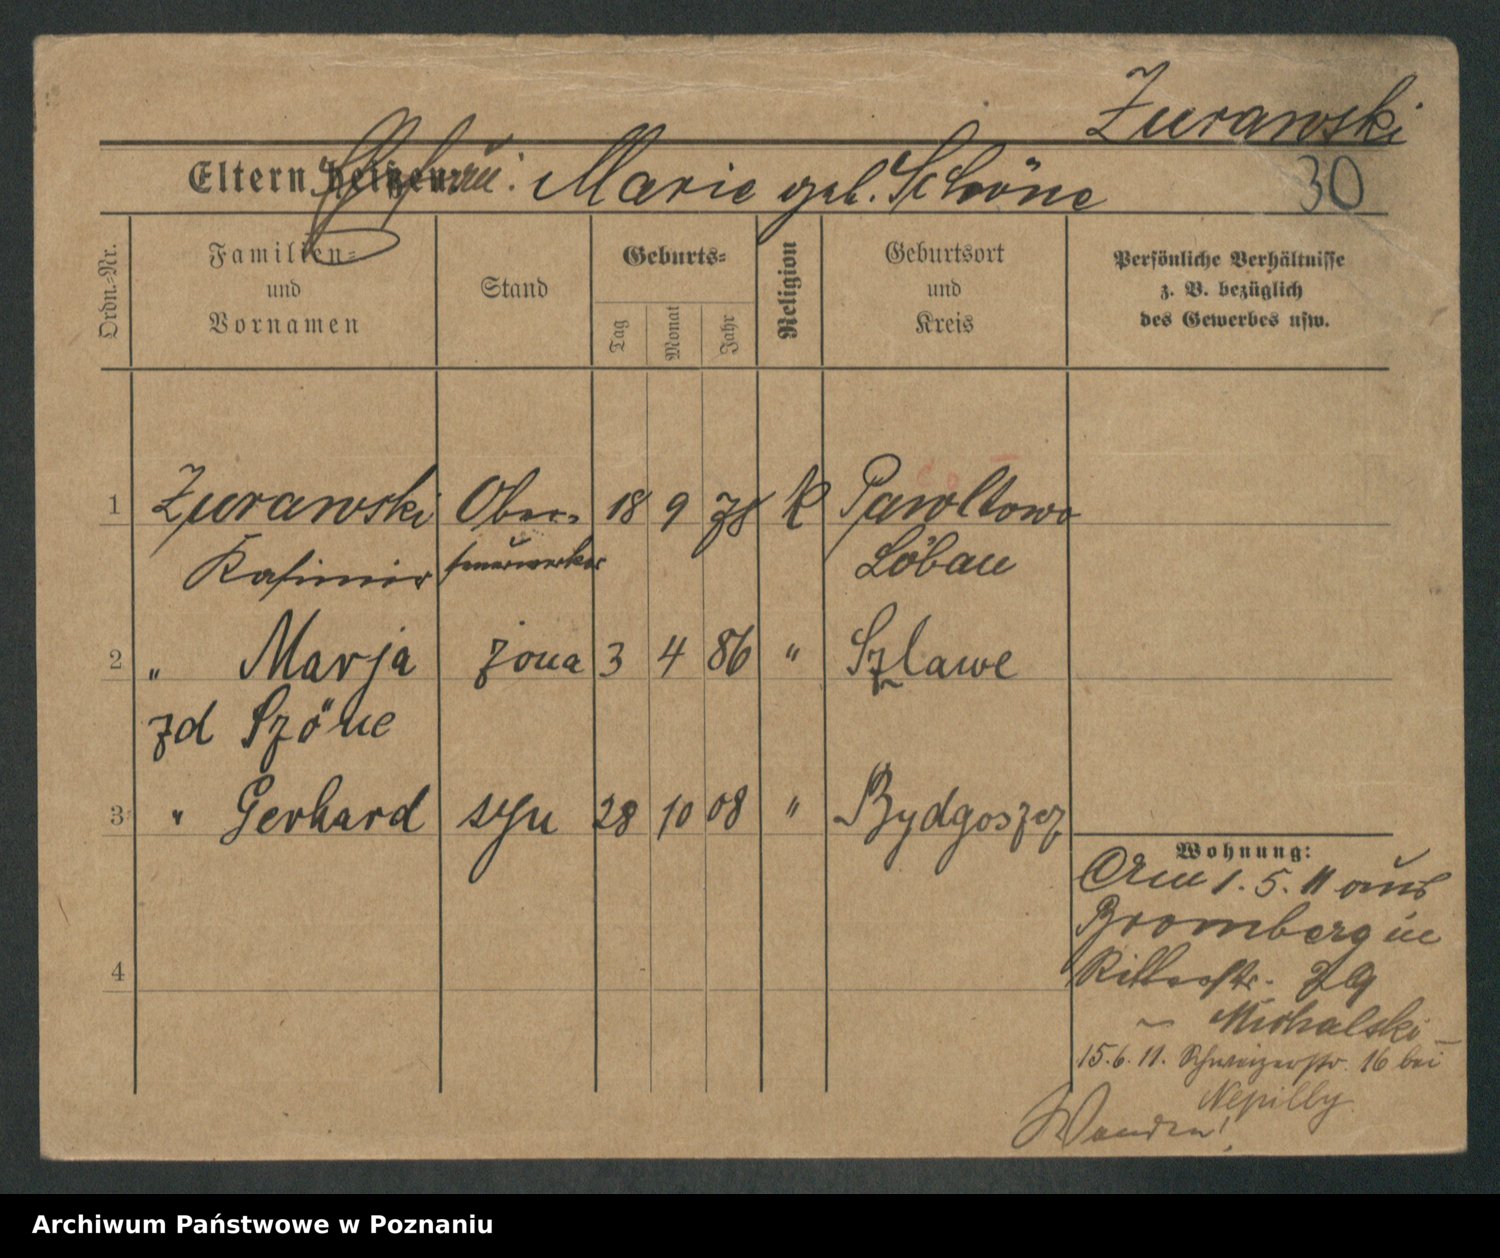 Żurawski
Eltern heißen: Ehefrau: Marie geb. Schöne
30
Ordn.-Nr.
Familien-
und
Vornamen
Stand
Geburts-
Tag
Monat
Jahr
Religion
Geburtsort
und
Kreis
Persönliche Verhältnisse
z. B. bezüglich
des Gewerbes usw.
1 Żurawski Ober- 18 9 78 K Pawłtowo
Kasimir feuerwerker Löbau
2 " Marja żona 3 4 86 " Szlawe
zd Szöne
3 " Gerhard syn 28 10 08 " Bydgoszcz
4
Wohnung:
1. 5. 11 aus
Bromberg in
Ritterstr. 29
Michalski
15. 6. 11. Schweizerstr. 16 bei
Nepilly
Wenden!
Archiwum Państwowe w Poznaniu